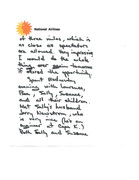 National Airlines
of three miles, which is
as close as spectators
are allowed. Very impressive
I would do the whole
thing over again tomorrow
if offered the opportunity.
Spent yesterday
evening with Laurence,
Sally, Suzanne,
and all their children.
Met Sally's husband
Jerry, who
is very nice (he's an
engineer at Cape K.)
Both Sally and Suzanne